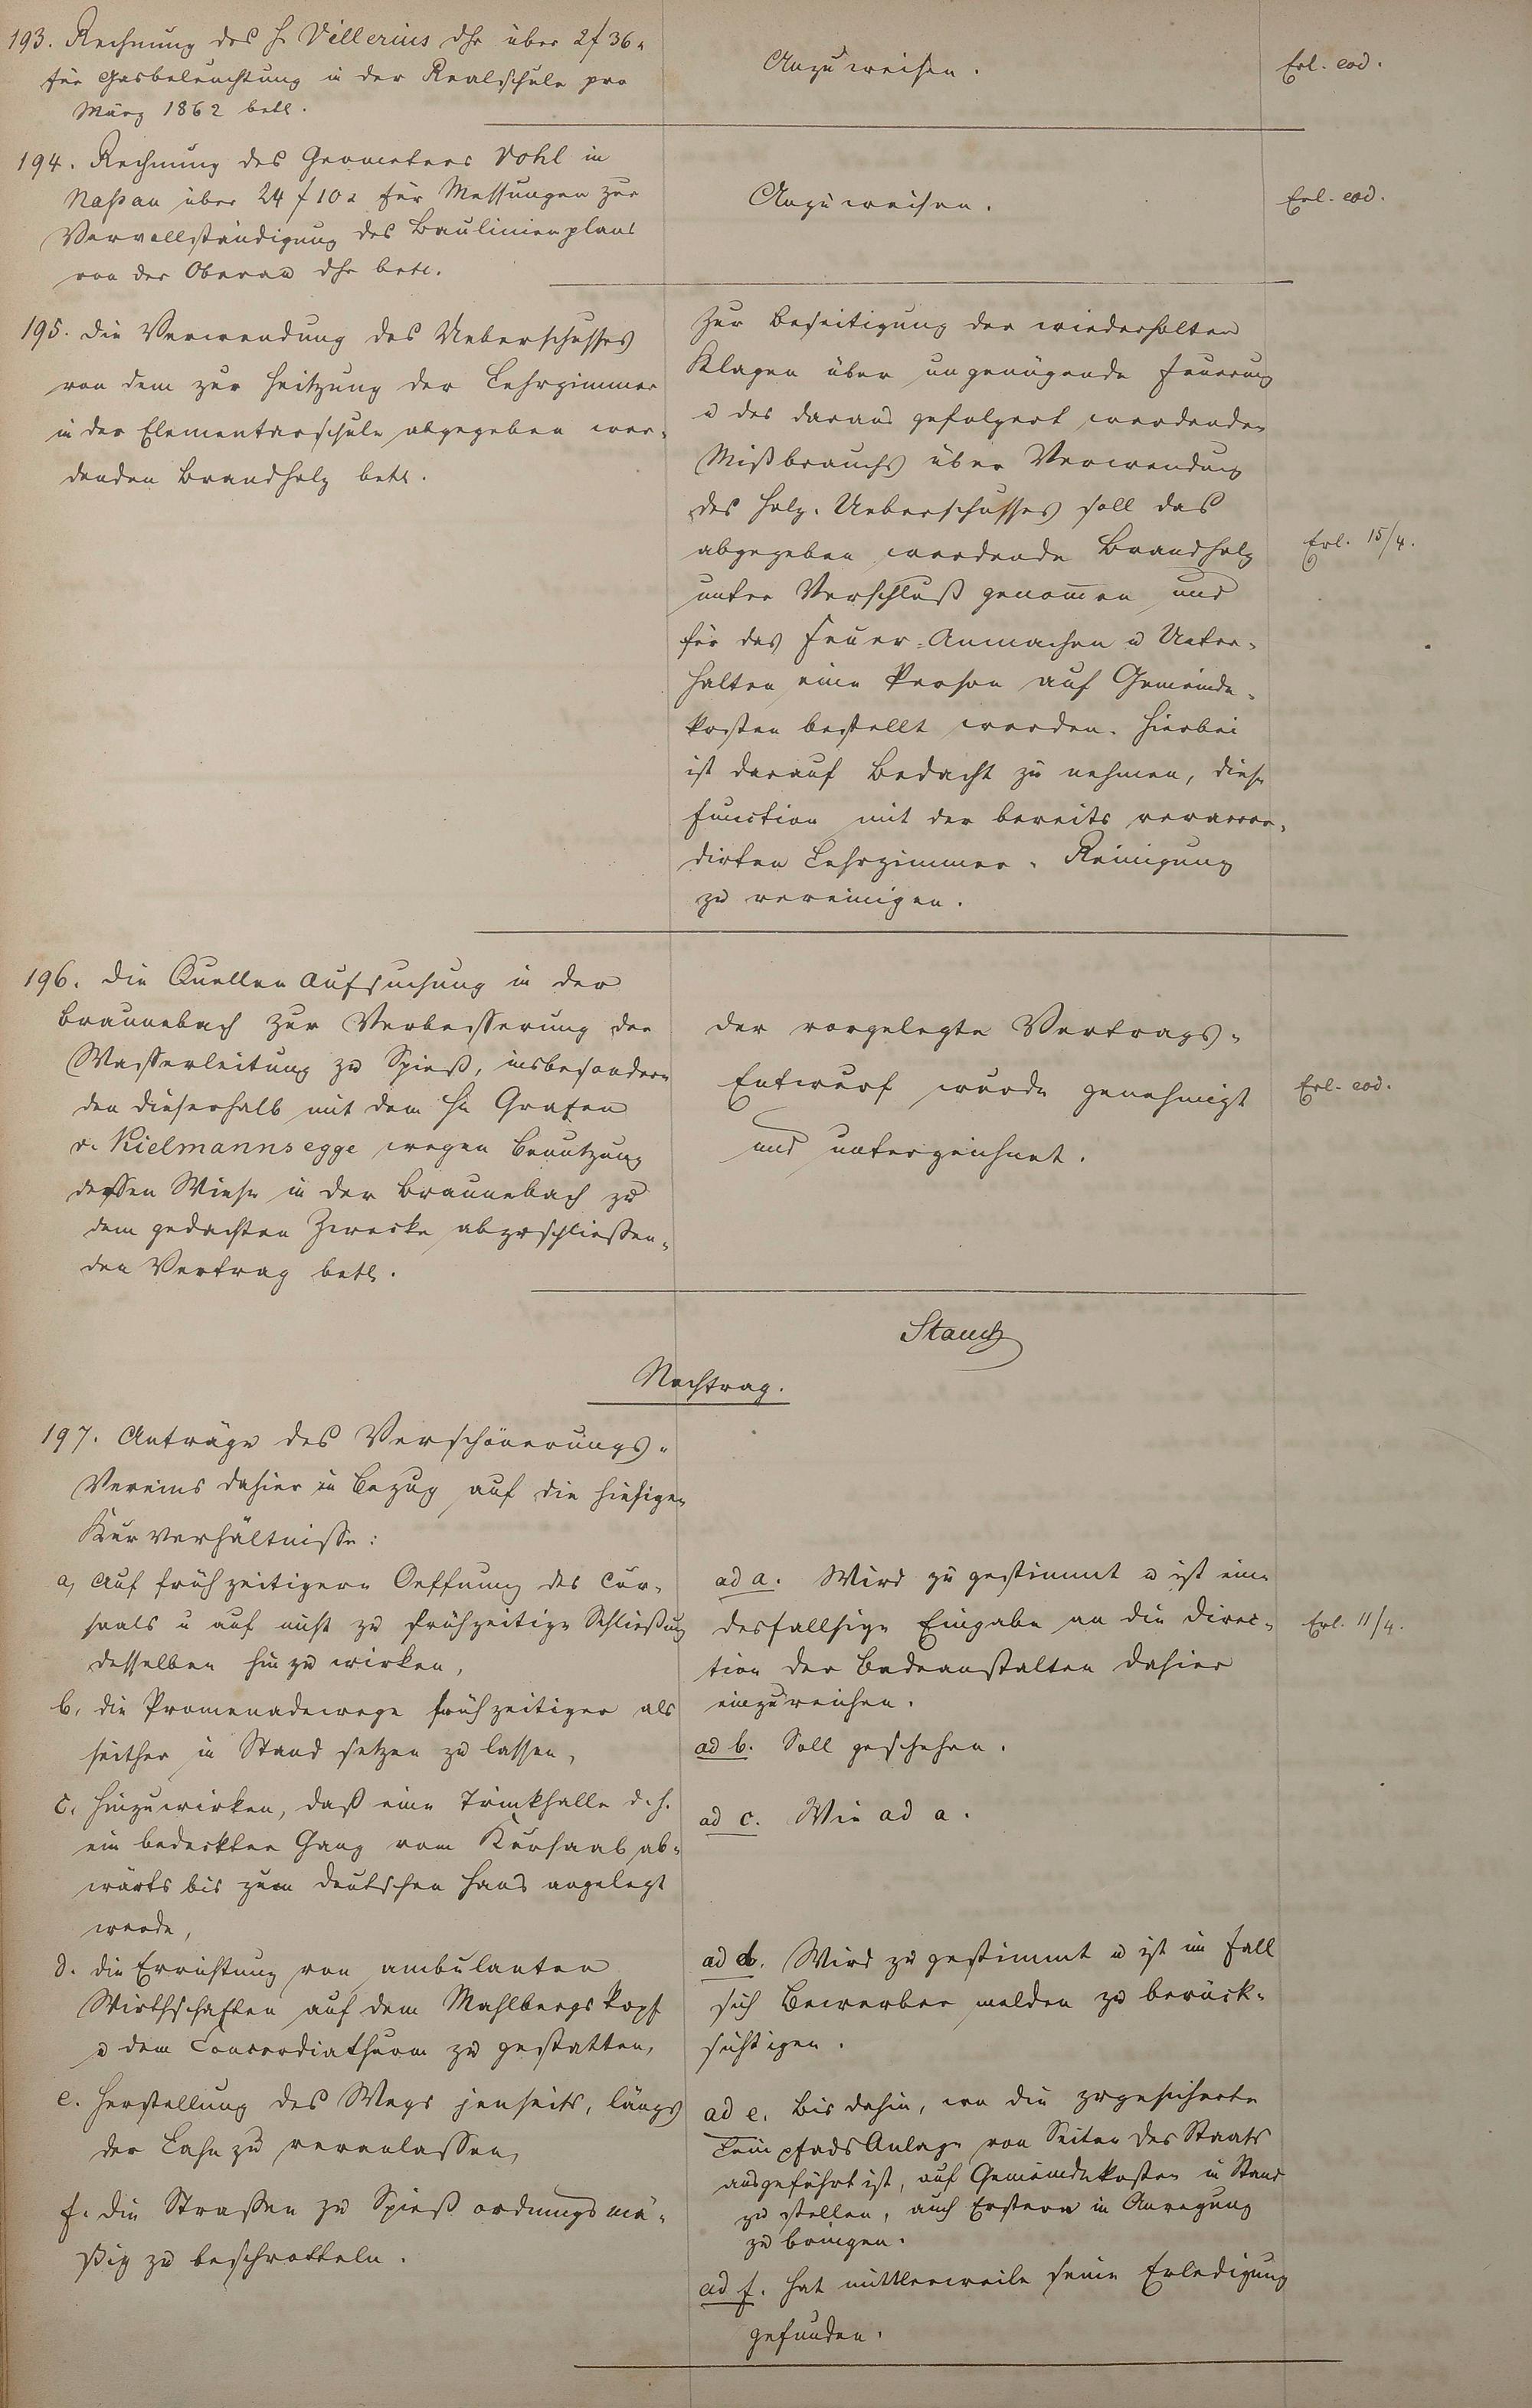 193. Rechnung des H. Villerius dhr über 2f 36x
für Gasbeleuchtung in der Realschule pro
März 1862 betr.
Anzuweisen.
Erl. eod.
194. Rechnung des Geometers Vohl in
Naßau über 24 f 10x für Messungen zur
Vervollständigung des Baulinienplans
von der Oberau dhr betr.
Anzuweisen.
Erl. eod.
195. Die Verwendung des Ueberschusses
von dem zur Heitzung der Lehrzimmer
in der Elementarschule abgegeben wer-
denden Brandholz betr.
Zur Beseitigung der wiederholten
Klagen über ungenügende Feuerung
u des daraus gefolgert werdenden
Mißbrauchs über Verwendung
des Holz-Ueberschusses soll das
abgegeben werdende Brandholz
unter Verschluß genommen und
für das Feuer-Anmachen u Unter-
halten eine Person auf Gemeinde-
kosten bestellt werden. Hierbei
ist darauf Bedacht zu nehmen, diese
Function mit der bereits veraccor-
dirten Lehrzimmer-Reinigung
zu vereinigen.
Erl. 15/4.
196. Die Quellen Aufsuchung in der
Braunebach zur Verbesserung der
Wasserleitung zu Spieß, insbesondere
den dieserhalb mit dem Hn Grafen
v. Kielmannsegge wegen Benutzung
dessen Wiese in der Braunebach zu
dem gedachten Zwecke abzuschließen-
den Vertrag betr.
Der vorgelegte Vertrags-
Entwurf wurde genehmigt
und unterzeichnet.
Erl. eod.
Nachtrag.
197. Anträge des Verschönerungs-
Vereins dahier in Bezug auf die hiesigen
Kurverhältnisse:
a, Auf frühzeitigere Oeffnung des Cur-
saals u auf nicht zu frühzeitige Schließung
desselben hinzuwirken,
b, die Promenadewege frühzeitiger als
seither in Stand setzen zu lassen,
c, hinzuwirken, daß eine Trinkhalle d.h.
ein bedeckter Gang vom Kursaal ab-
wärts bis zum deutschen Haus angelegt
werde,
d. die Errichtung von ambulanten
Wirthschaften auf dem Mahlbergskopf
u dem Concordiathurm zu gestatten,
e. Herstellung des Wegs jenseits, längs
der Lahn zu veranlassen,
f. die Straßen zu Spieß ordnungsmä-
ßig zu beschrotteln.
ad a. Wird zugestimmt u ist eine
desfallsige Eingabe an die Direc-
tion der Badeanstalten dahier
einzureichen.
Erl. 11/4.
ad b. Soll geschehen.
ad c. Wie ad a.
ad d. Wird zugestimmt u ist im Fall
sich Bewerber melden zu berück-
sichtigen.
ad e. Bis dahin, wo die zugesicherte
Leinpfads Anlage von Seiten des Staats
ausgeführt ist, auf Gemeindekosten in Stand
zu stellen, auch Erstere in Anregung
zu bringen.
ad f. Hat mittlerweile seine Erledigung
gefunden.